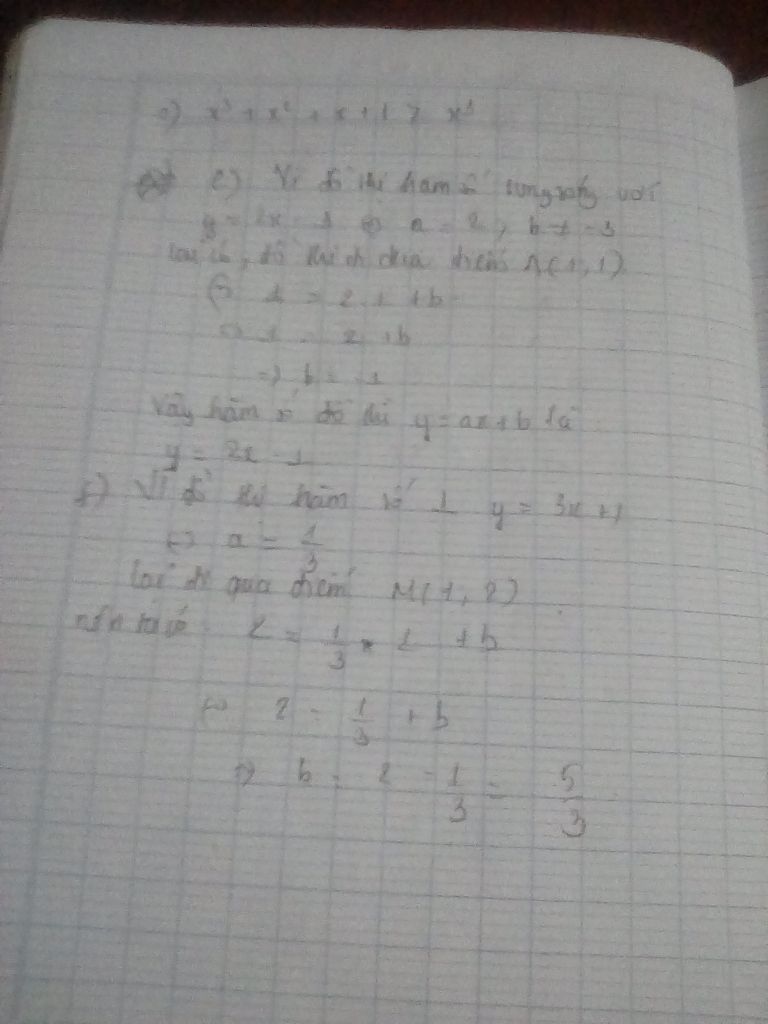 x³ + x² + x + 1 > x³
e) Vì đồ thị hàm số song song với
y = 2x - 3 ⇔ a = 2, b ≠ -3
lại có, đồ thị đi qua điểm A(1,1)
⇔ 1 = 2.1 + b
⇔ 1 = 2 + b
⇒ b = -1
Vậy hàm số đồ thị y = ax + b là
y = 2x - 1
f) Vì đồ thị hàm số ⊥ y = 3x + 1
⇔ a = 1/3
lại đi qua điểm M(1, 2)
nên ta có 2 = 1/3 . 1 + b
⇔ 2 = 1/3 + b
⇒ b = 2 - 1/3 = 5/3